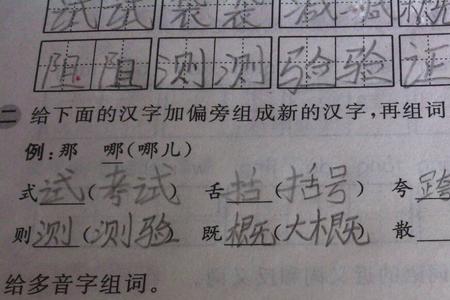 试试袋袋减减概
阻阻测测验验证
二 给下面的汉字加偏旁组成新的汉字,再组词
例:那 哪(哪儿)
式试(考试) 舌括(括号) 夸跨
则测(测验) 既概(大概) 散
给多音字组词。